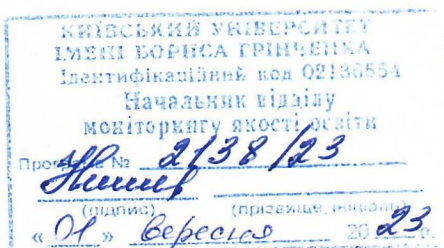 КИЇВСЬКИЙ УНІВЕРСИТЕТ
ІМЕНІ БОРИСА ГРІНЧЕНКА
Ідентифікаційний код 02136554
Начальник відділу
моніторингу якості освіти
Програма № 2138/23
(підпис) (прізвище, ініціали)
« 01 » вересня 20 23 р.